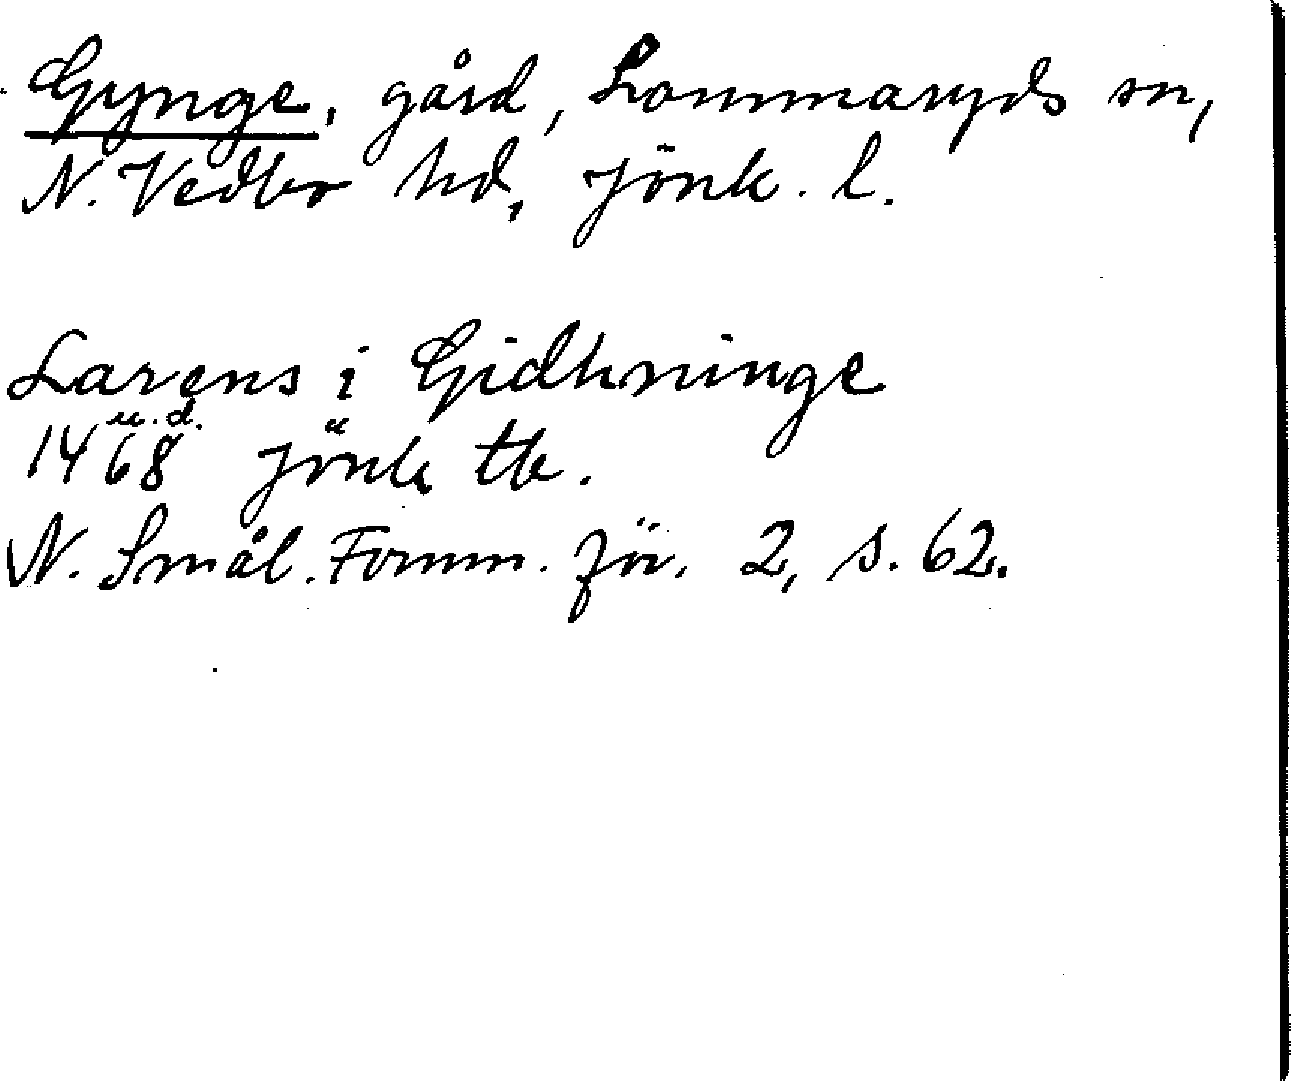 Gynge, gård, Lommaryds sn,
N. Vedbo hd, Jönk. l.
Larens i Gidhninge
u. d.
1468 Jönk tb.
N. Smål. Fornm. för. 2, s. 62.